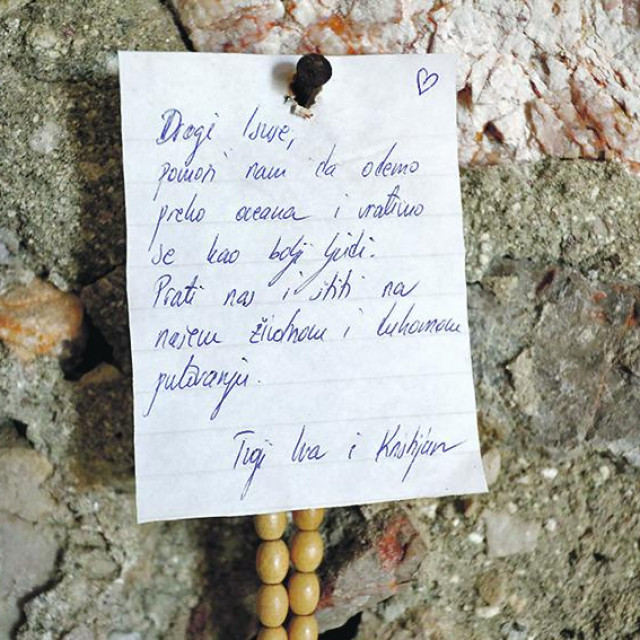 Dragi Isuse,
pomozi nam da odemo
preko oceana i vratimo
se kao bolji ljudi.
Prati nas i štiti na
našem životnom i duhovnom
putovanju.
Tvoji Iva i Kristijan